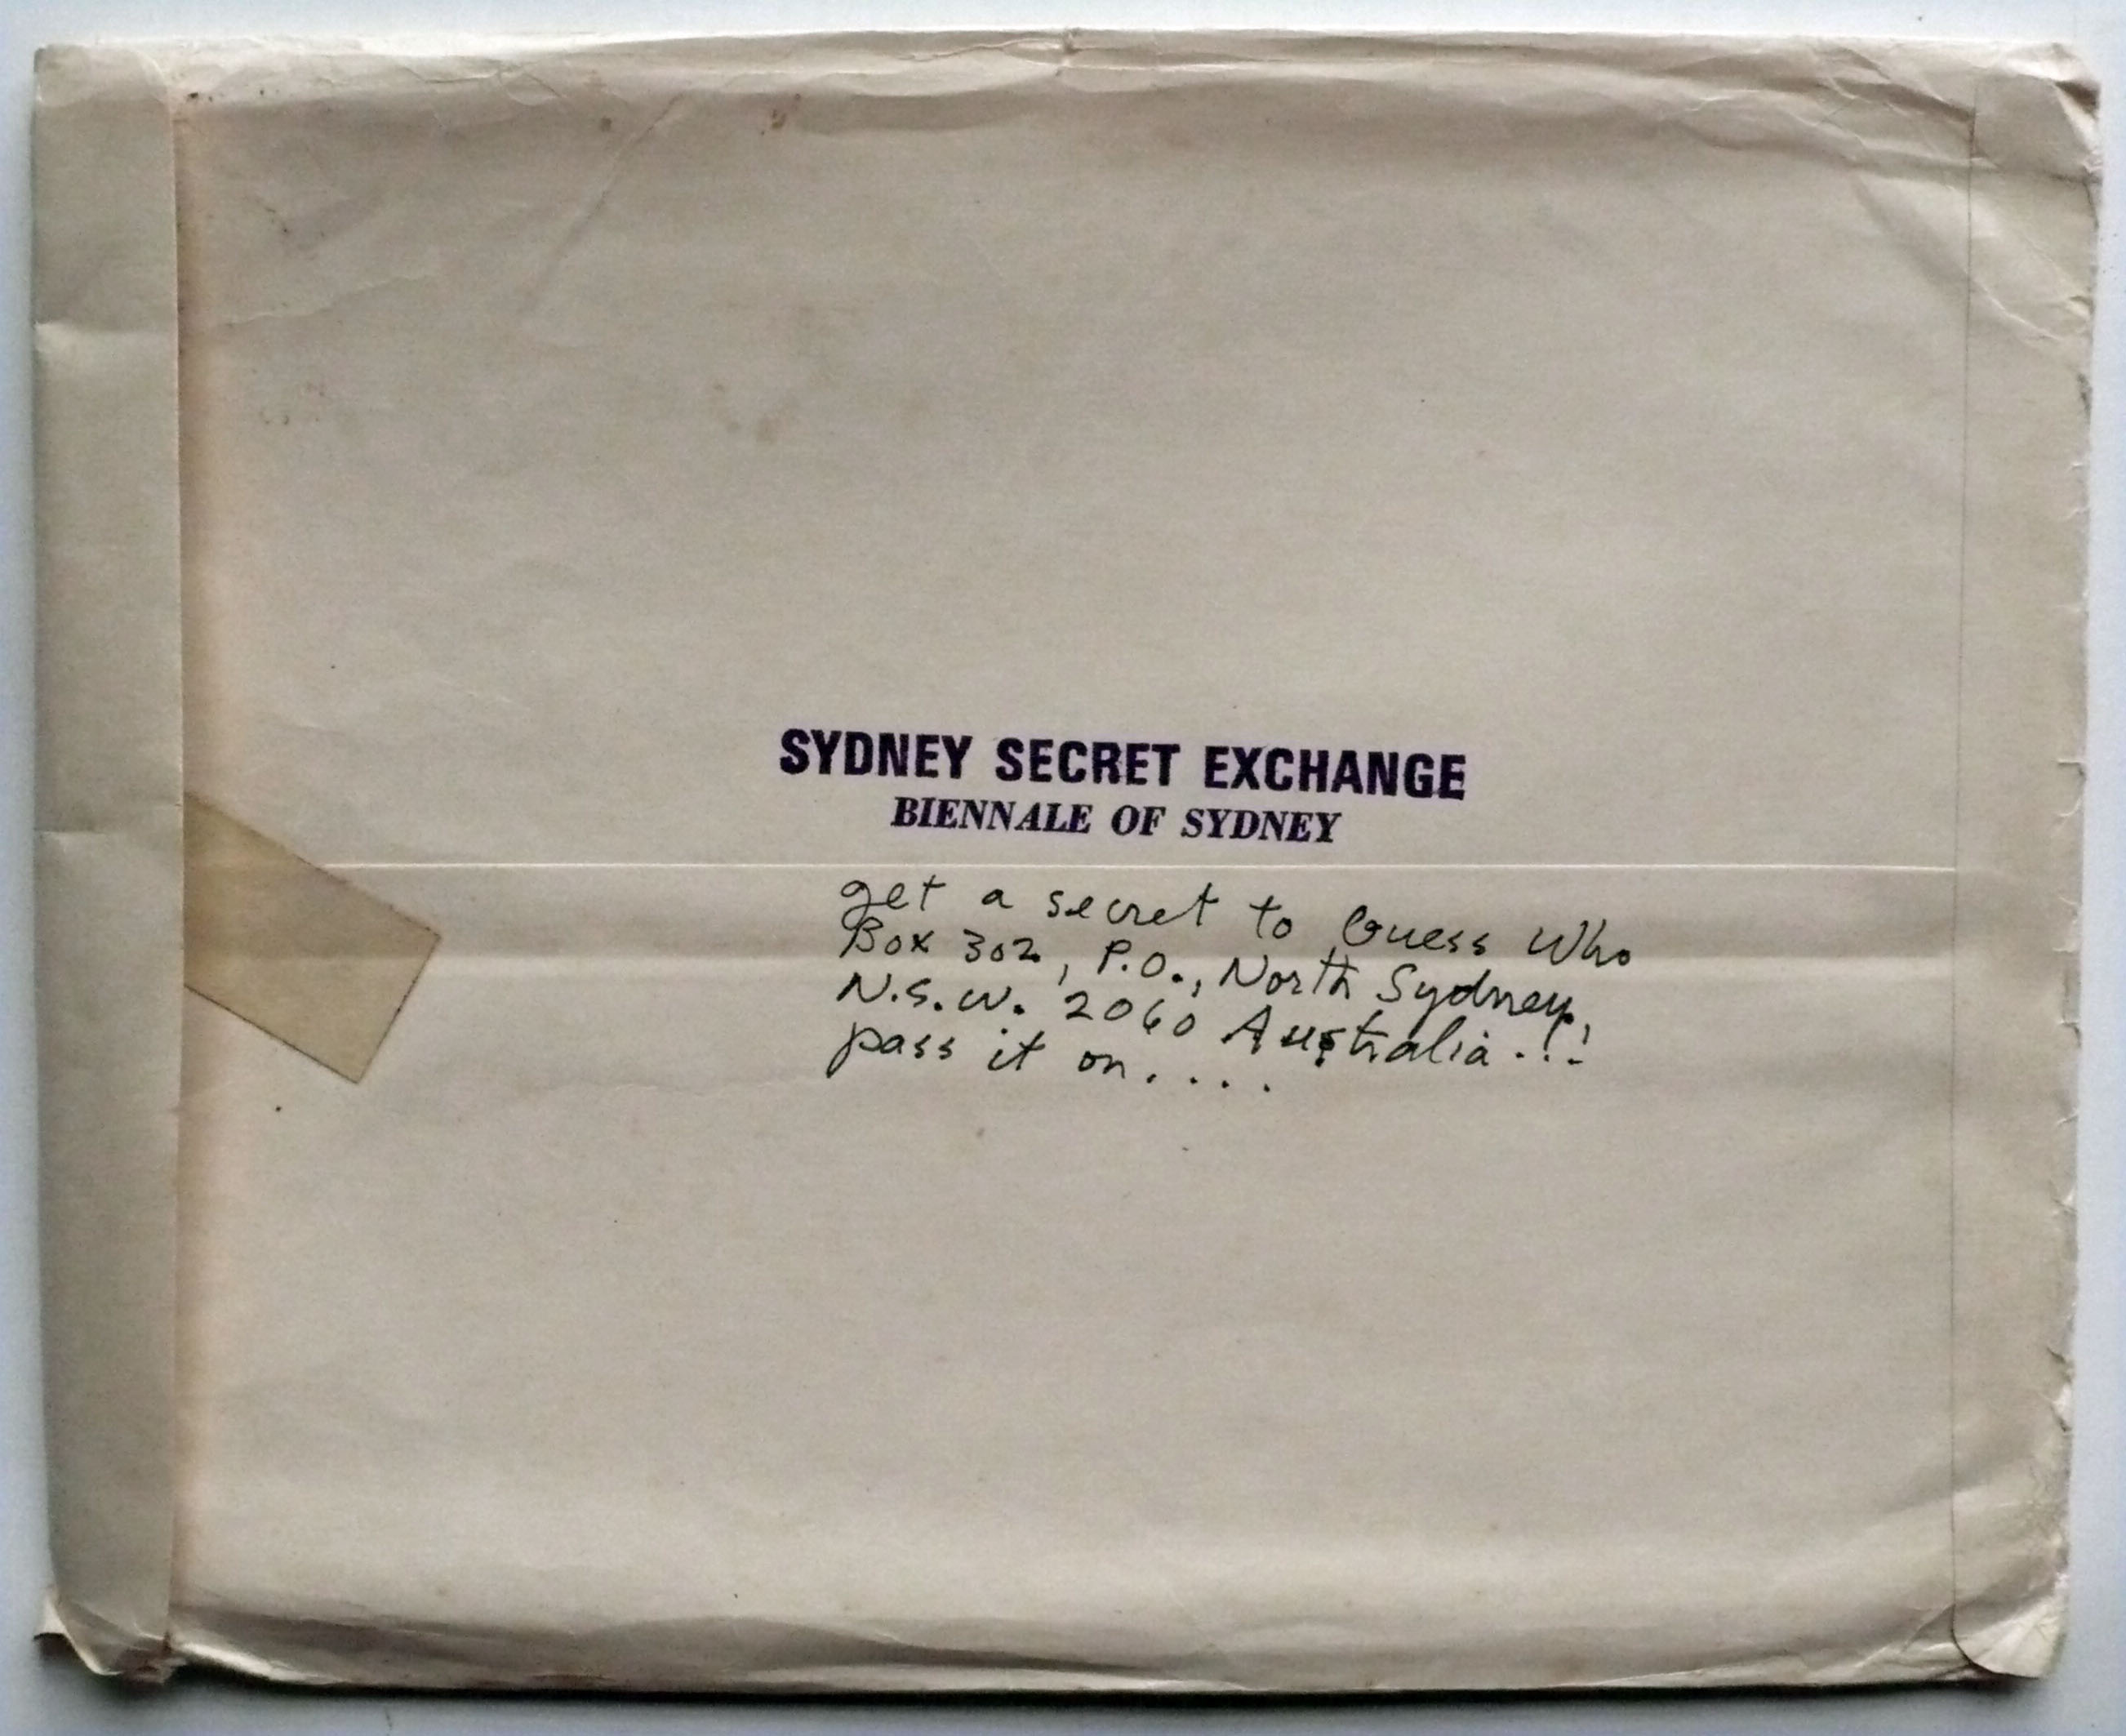 SYDNEY SECRET EXCHANGE
BIENNALE OF SYDNEY
get a secret to Guess Who
Box 302, P.O., North Sydney,
N.S.W. 2060 Australia.!!
pass it on....